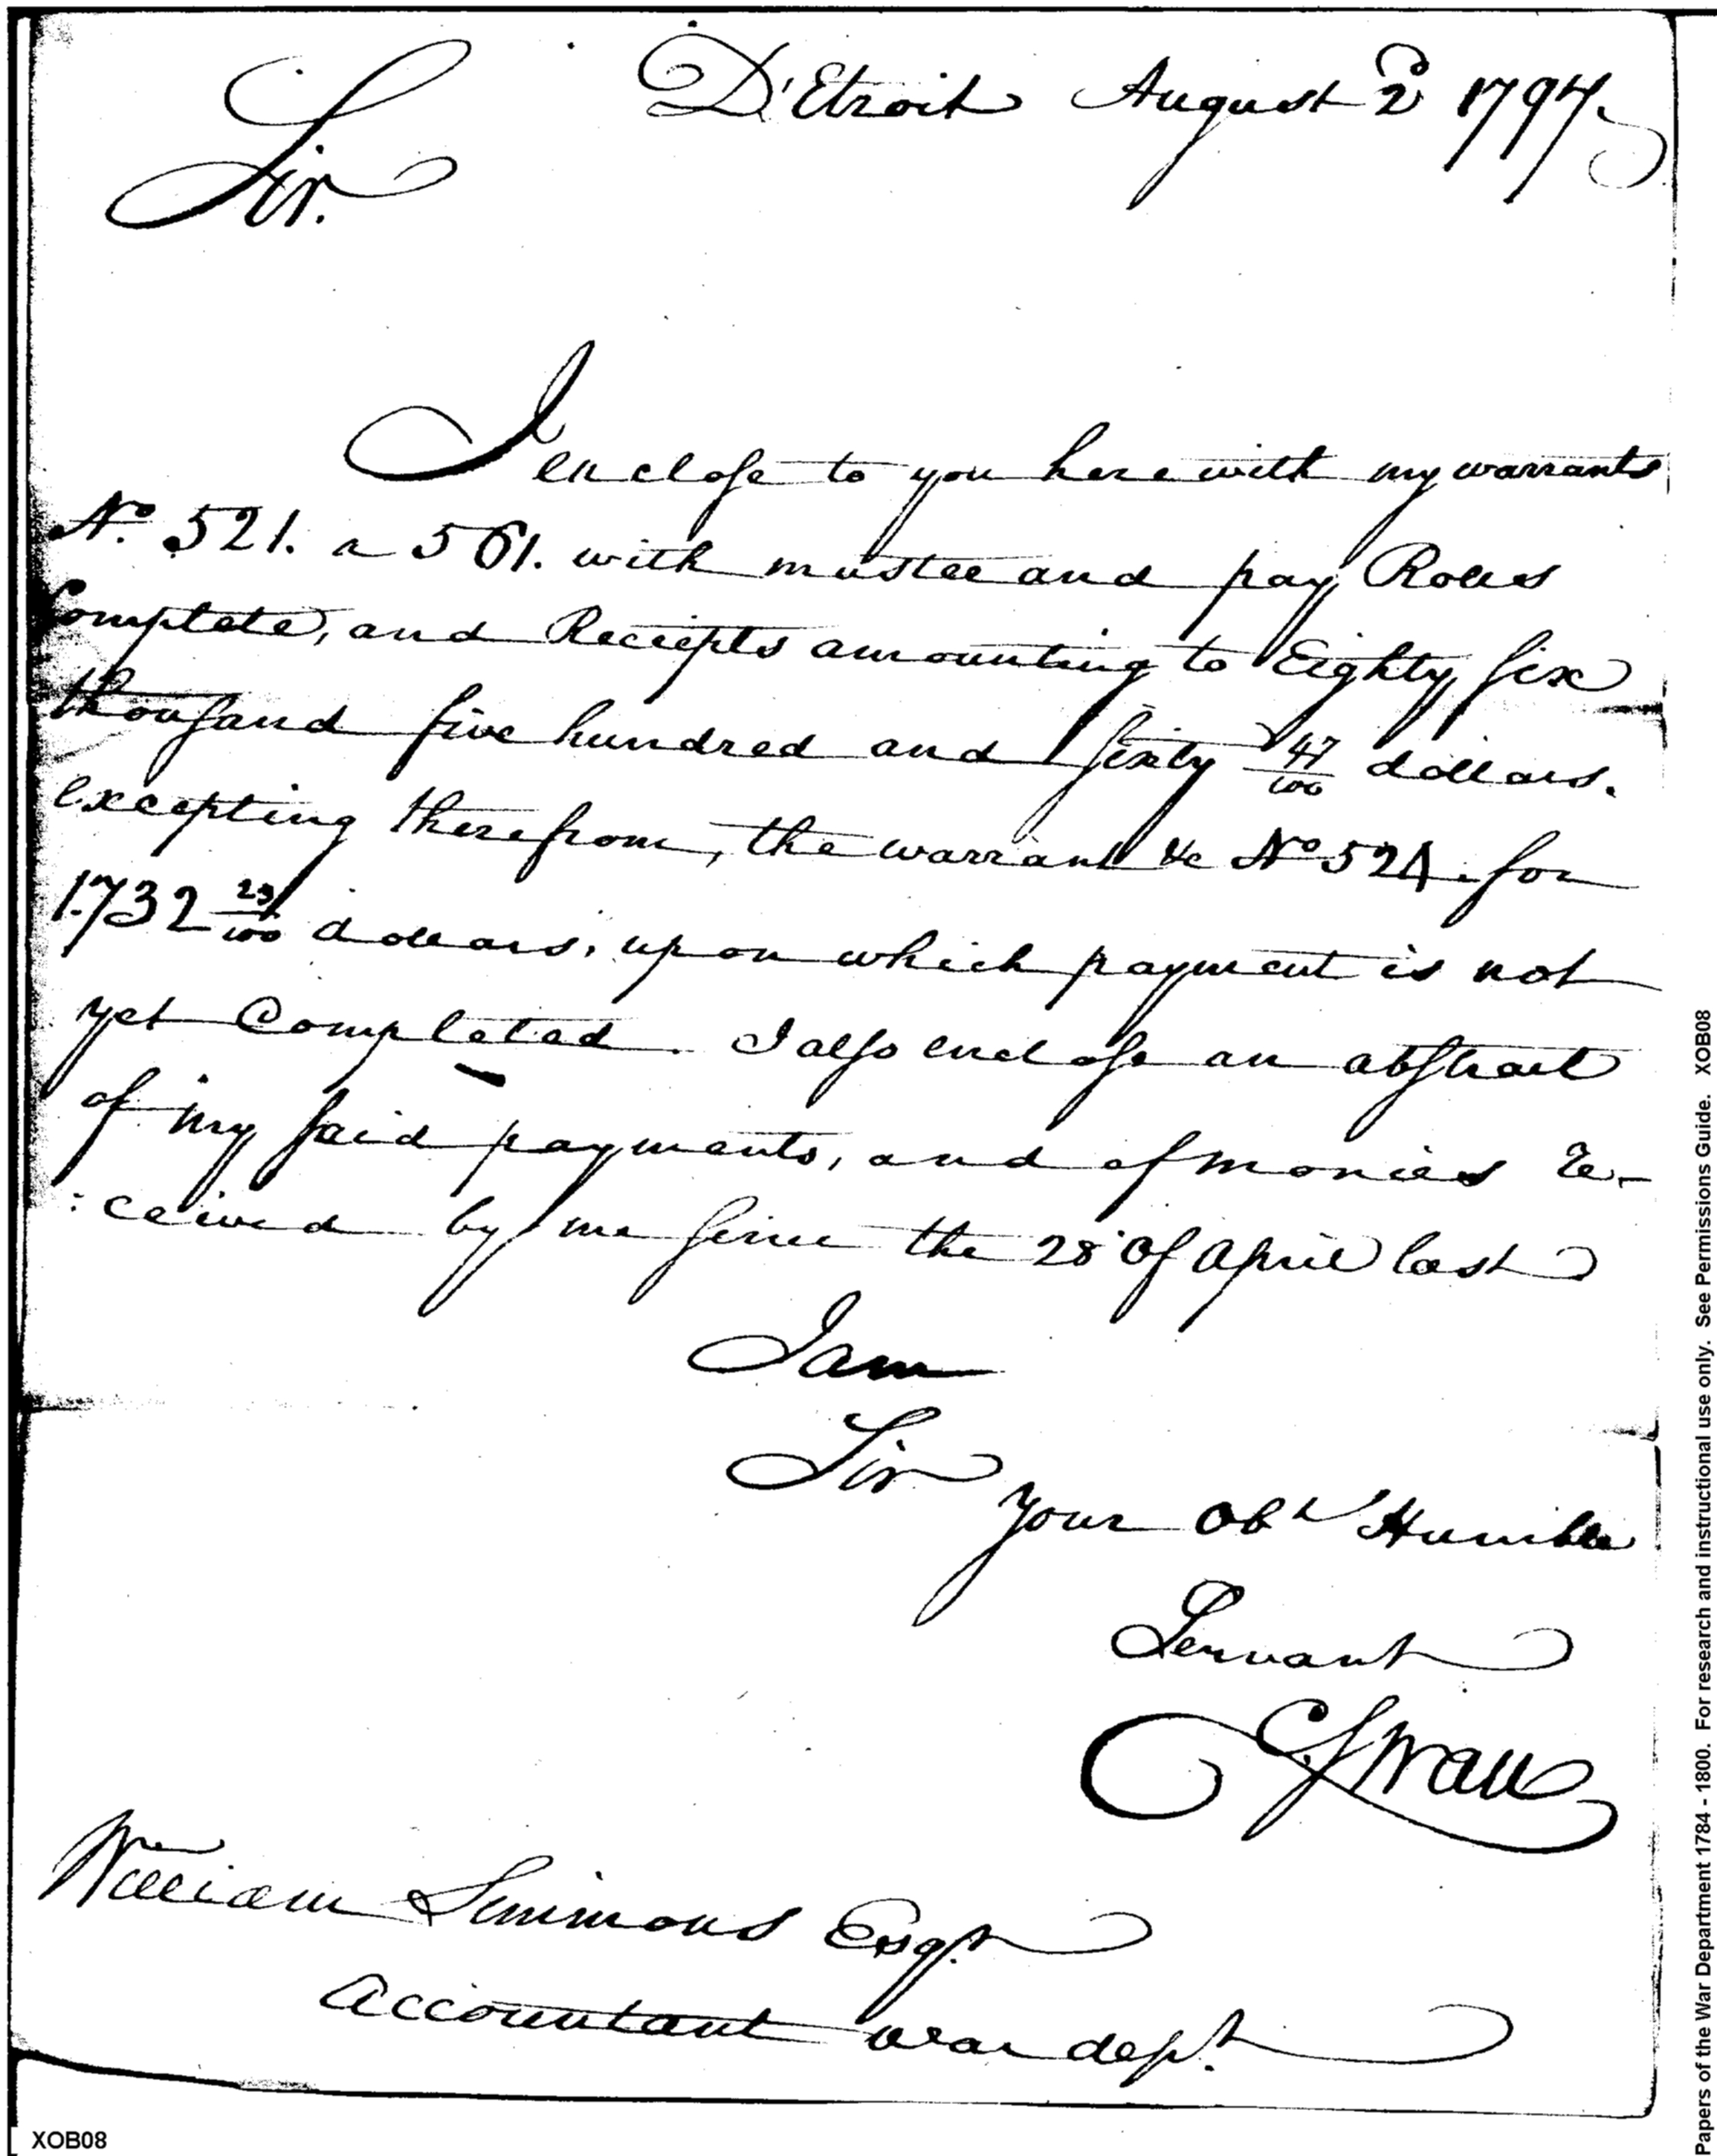 D'Etroit August 2d 1797.
Sir.
I enclose to you herewith my warrants
No. 521. a 561. with muster and pay Rolls
Complete, and Receipts amounting to Eighty six
thousand five hundred and sixty 47/100 dollars.
excepting therefrom, the warrant &c No 524. for
1.732 23/100 dollars, upon which payment is not
yet Completed. I also enclose an abstract
of my said payments, and of monies re-
:ceived by me since the 28 of April last
I am
Sir
your Obt Humble
Servant
C. Swan
William Simmons Esqr.
Accountant war dept.
XOB08
Papers of the War Department 1784 - 1800. For research and instructional use only. See Permissions Guide. XOB08